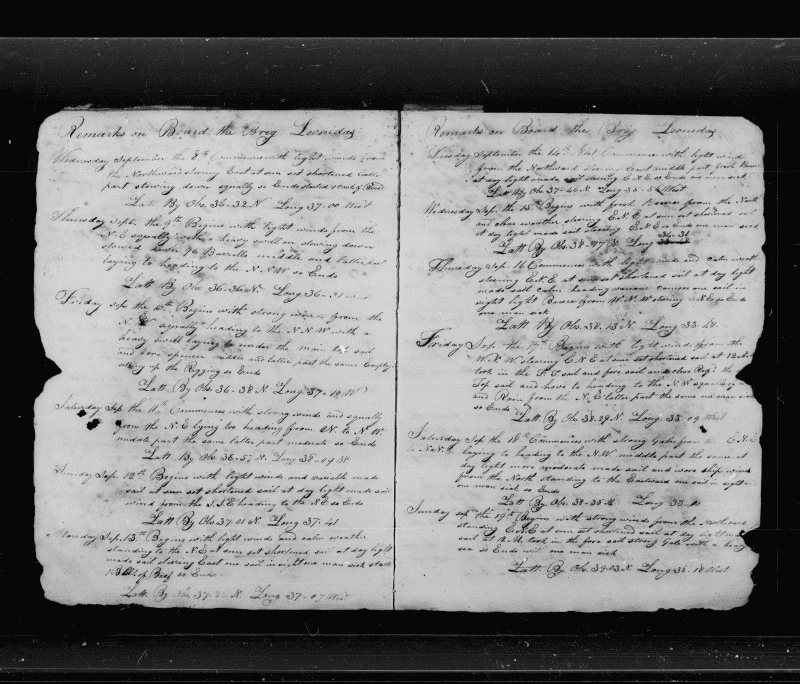 Remarks on Board the Brig Leonidas
Wednesday September the 8th Commences with light winds from
the Northward steering East at sun set shortened latter
part stowing down squally so Ends
Latt By Obs 36-32 N Long 37-00 West
Thursday Sept. the 9th Begins with light winds from the
N.E. squally with a heavy swell on stowing down
stowed 96 Barrells middle and latter part
laying to heading to the N.N.W so Ends
Latt By Obs 36-36 N. Long 36-31
Friday Sep the 10th Begins with strong winds from the
N.E. squally heading to the N.N.W with a
heavy swell laying to under the main top sail
and fore spencer middle and latter part the same Employ
up the Rigging so Ends
Latt By Obs 36-38 N Long 37-10 W
Saturday Sep the 11th Commences with strong winds and squally
from the N.E lying too heading from N. to N.W.
middle part the same latter part moderate so Ends
Latt By Obs 36-57 N. Long 38-09 W
Sunday Sep. 12th Begins with light winds and variable made
sail at sun set shortened sail at day light made sail
wind from the S.S.E heading to the N.E so Ends
Latt By Obs 37-01 N Long 37-41
Monday Sep. 13th Begins with light winds and calm weather
standing to the N.E at sun set shortened sail at day light
made sail steering East one sail in sight one man sick
of Beef so Ends
Latt. By Obs 37-26 N. Long 37-07 West
Remarks on Board the Brig Leonidas
Tuesday September the 14th Commence with light wind
from the Northward steering East middle part fresh Breeze
at day light made sail steering E.N.E so Ends one man sick
Latt By Obs 37-46 N. Long 35-56 West
Wednesday Sep. the 15th Begins with fresh Breeze from the North
and clear weather steering E.N.E at sun set shortened sail
at day light made sail steering E.N.E so Ends one man sick
Latt By Obs 38-07 N Long 34-31
Thursday Sep. 16 Commences with light winds and calm weather
steering E.N.E at sun set shortened sail at day light
made sail calm heading various courses one sail in
sight light Breeze from W.N.W steering E.N.E so Ends
one man sick
Latt By Obs 38-13 N Long 33-48
Friday Sep. the 17th Begins with light winds from the
W.N.W. steering E.N.E at sun set shortened sail at 12
took in the F.T sail and fore sail and close the
Top sail and hove to heading to the N.W squally
and Rain from the N.E latter part the same one man sick
so Ends
Latt. By Obs 38-29 N. Long 33-09 West
Saturday Sep the 18th Commences with strong Gales from the E.N.E
to N.N.E. laying to heading to the N.W. middle part the same at
day light more moderate made sail and wore ship wind
from the North standing to the Eastward one sail in sight
one man sick so Ends
Latt By Obs 38-35 N Long 33-10
Sunday sep the 19th Begins with strong winds from the Northward
standing E.N.E at sun set shortened sail at day light made
sail at 12 M. took in the fore sail strong Gale with a heavy
sea so Ends with one man sick
Latt. By Obs 39-03 N Long 32-18 West